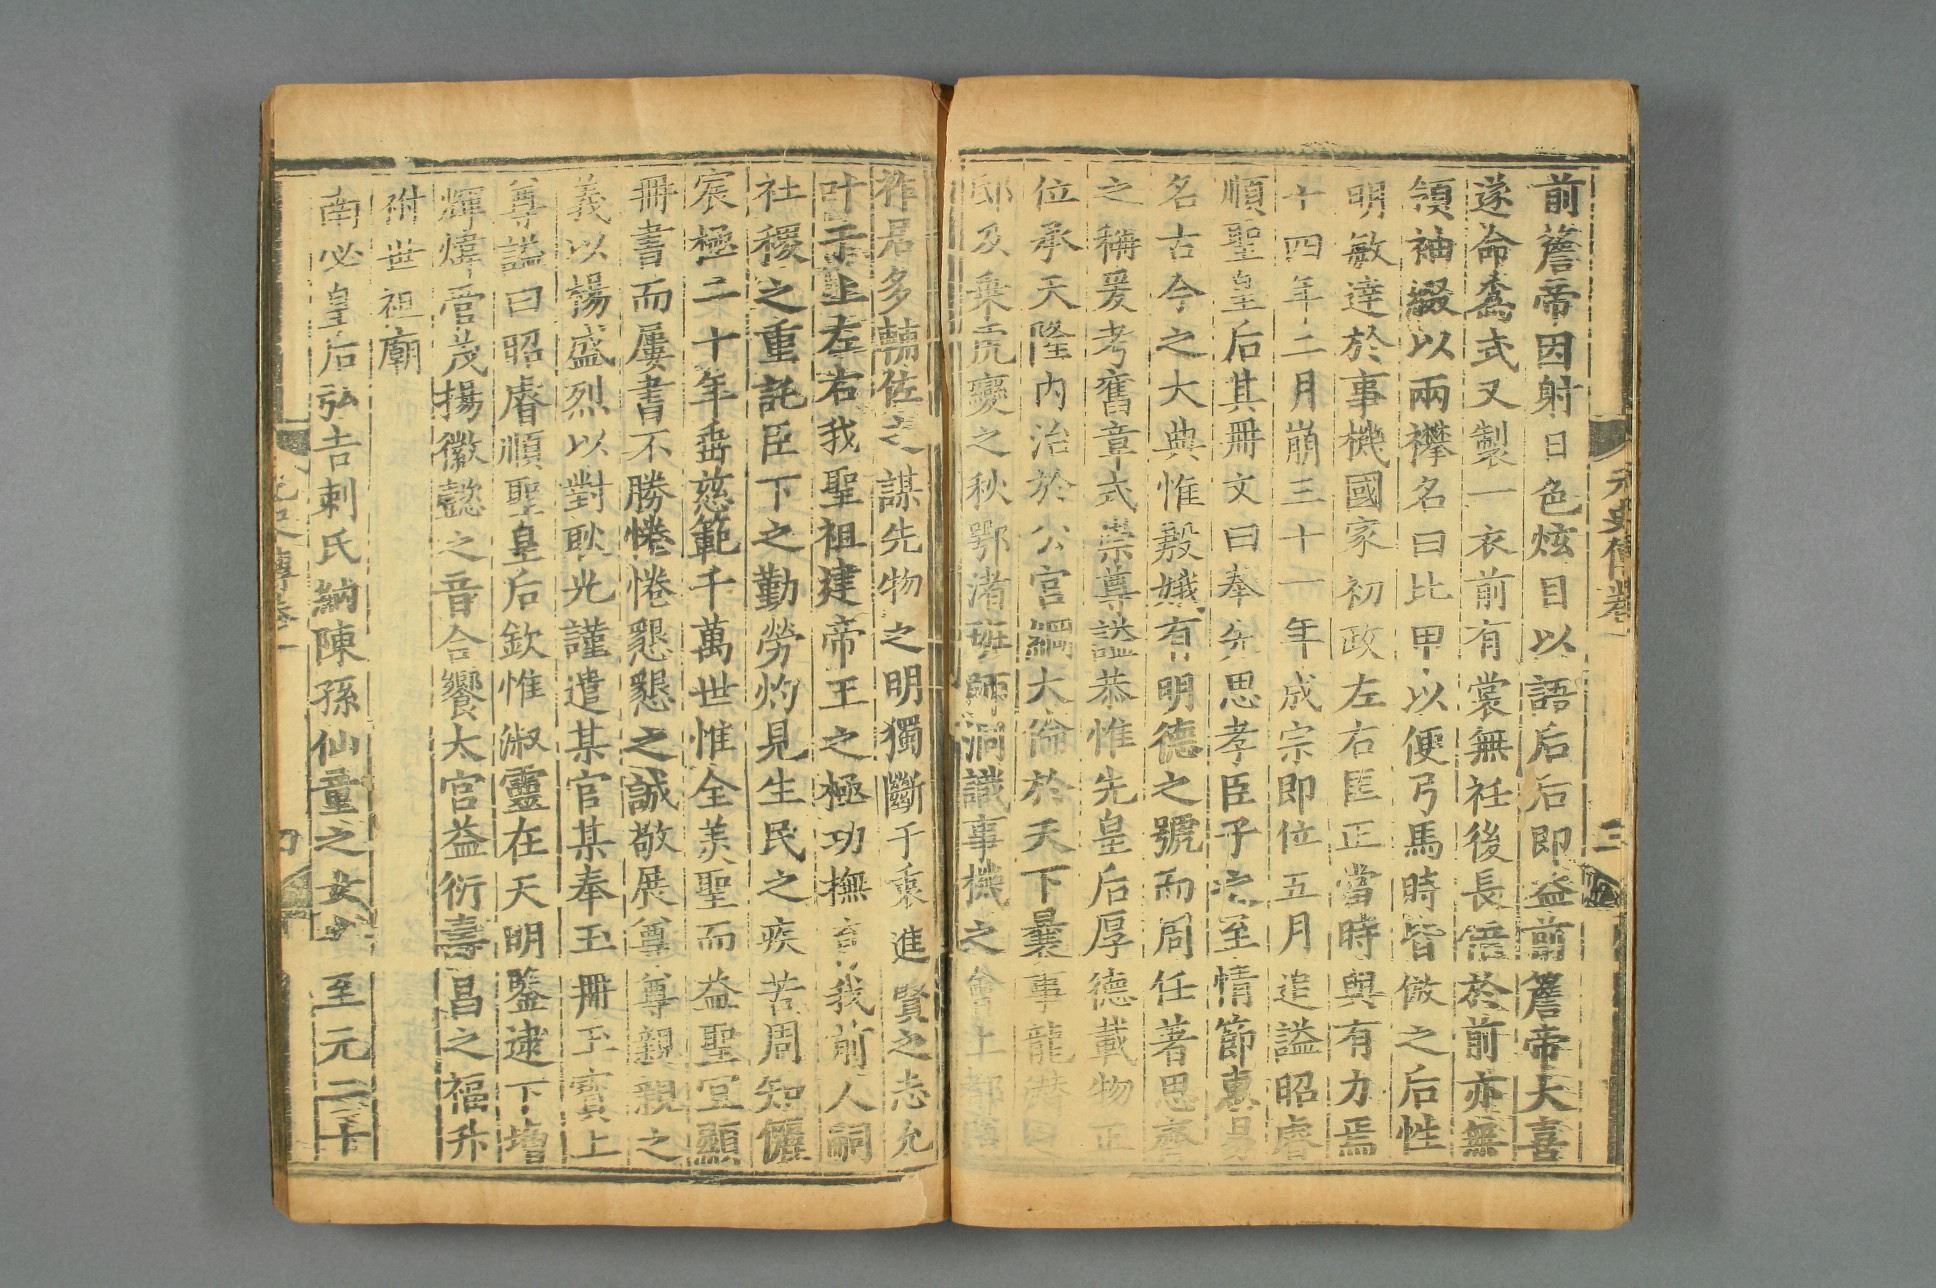 元史傳卷一
三
前簷帝因射日色炫目以語后后即益前簷帝大喜
遂命爲式又製一衣前有裳無衽後長倍於前亦無
領袖綴以兩襻名曰比甲以便弓馬時皆倣之后性
明敏達於事機國家初政左右匡正當時與有力焉
十四年二月崩三十一年成宗即位五月追謚昭睿
順聖皇后其冊文曰奉先思孝臣子之至情節惠易
名古今之大典惟殷娥有明德之號而周任著思齊
之稱爰考舊章式崇尊謚恭惟先皇后厚德載物正
位承天隆內治於公宮綱大倫於天下曩事龍潛
邸及乗虎變之秋鄂渚班師洞識事機之會上都
祚居多輔佐之謀先物之明獨斷于衷進賢之志允
叶于上左右我聖祖建帝王之極功撫育我前人嗣
社稷之重託臣下之勤勞灼見生民之疾苦周知儷
宸極二十年垂慈範千萬世惟全美聖而益聖宜顯
冊書而屢書不勝惓惓懇懇之誠敬展尊尊親親之
義以揚盛烈以對耿光謹遣某官某奉玉冊玉寶上
尊謚曰昭睿順聖皇后欽惟淑靈在天明鑒逮下增
輝煒管茂揚徽懿之音合饗太宮益衍壽昌之福升
祔世祖廟
南必皇后弘吉剌氏納陳孫仙童之女 至元二十
元史傳卷一
四